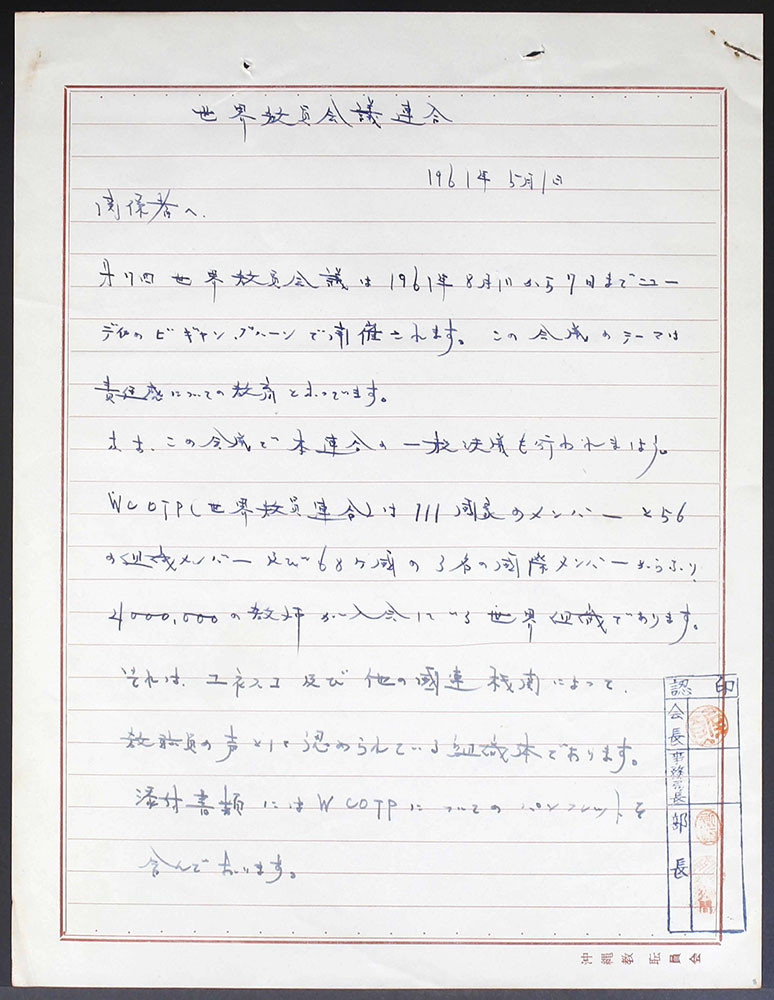 世界教員会議連合
1961年 5月1日
関係者へ.
才11回 世界教員会議は1961年8月1日から7日までニュー
デリーの ビギャン、ブハーンで開催されます。この会議のテーマは
責任感についての教育となっています。
また、この会議で本連合の一般決議も行われましょう。
WCOTP(世界教員連合)は111国家のメンバーと56
の組織メンバー及び68ヶ国の3名の国際メンバーからなり、
4,000,000の教師が入会している世界組織であります。
それは、ユネスコ及び他の国連機関によって、
教職員の声として認められている組織体であります。
添付書類にはWCOTPについてのパンフレットを
含んでおります。
認 印
会長
事務局長
部長
沖縄教職員会